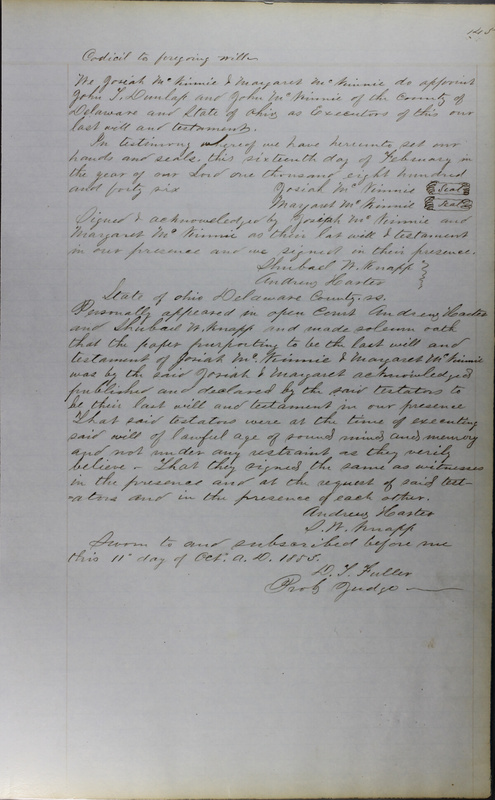 145
Codicil to forgoing will
We Josiah Mc Kinnie & Margaret Mc Kinnie do appoint
John T. Dunlap and John Mc Kinnie of the County of
Delaware and State of Ohio as Executors of this our
last will and testament.
In testimony whereof we have hereunto set our
hands and seals, this sixteenth day of February in
the year of our Lord one thousand eight hundred
and forty six
Josiah Mc Kinnie Seal
Margaret Mc Kinnie Seal
Signed & acknowledged by Joseph Mc Kinnie and
Margaret Mc Kinnie as their last will & testament
in our presence and we signed in their presence.
Shubael W. Knapp
Andrew Harter
State of Ohio Delaware County. ss.
Personally appeared in open Court Andrew Harter
and Shubael W. Knapp and made solemn oath
that the paper purporting to be the last will and
testament of Josiah Mc. Kinnie & Margaret Mc Kinnie
was by the said Josiah & Margaret acknowledged
published and declared by the said testators to
be their last will and testament in our presence
That said testators were at the time of executing
said will of lawful age of sound mind and memory
and not under any restraint as they verily
believe - That they signed the same as witnesses
in the presence and at the request of said test-
ators and in the presence of each other.
Andrew Harter
S. W. Knapp
Sworn to and subscribed before me
this 11" day of Oct. A. D. 1855.
D. T. Fuller
Prob Judge